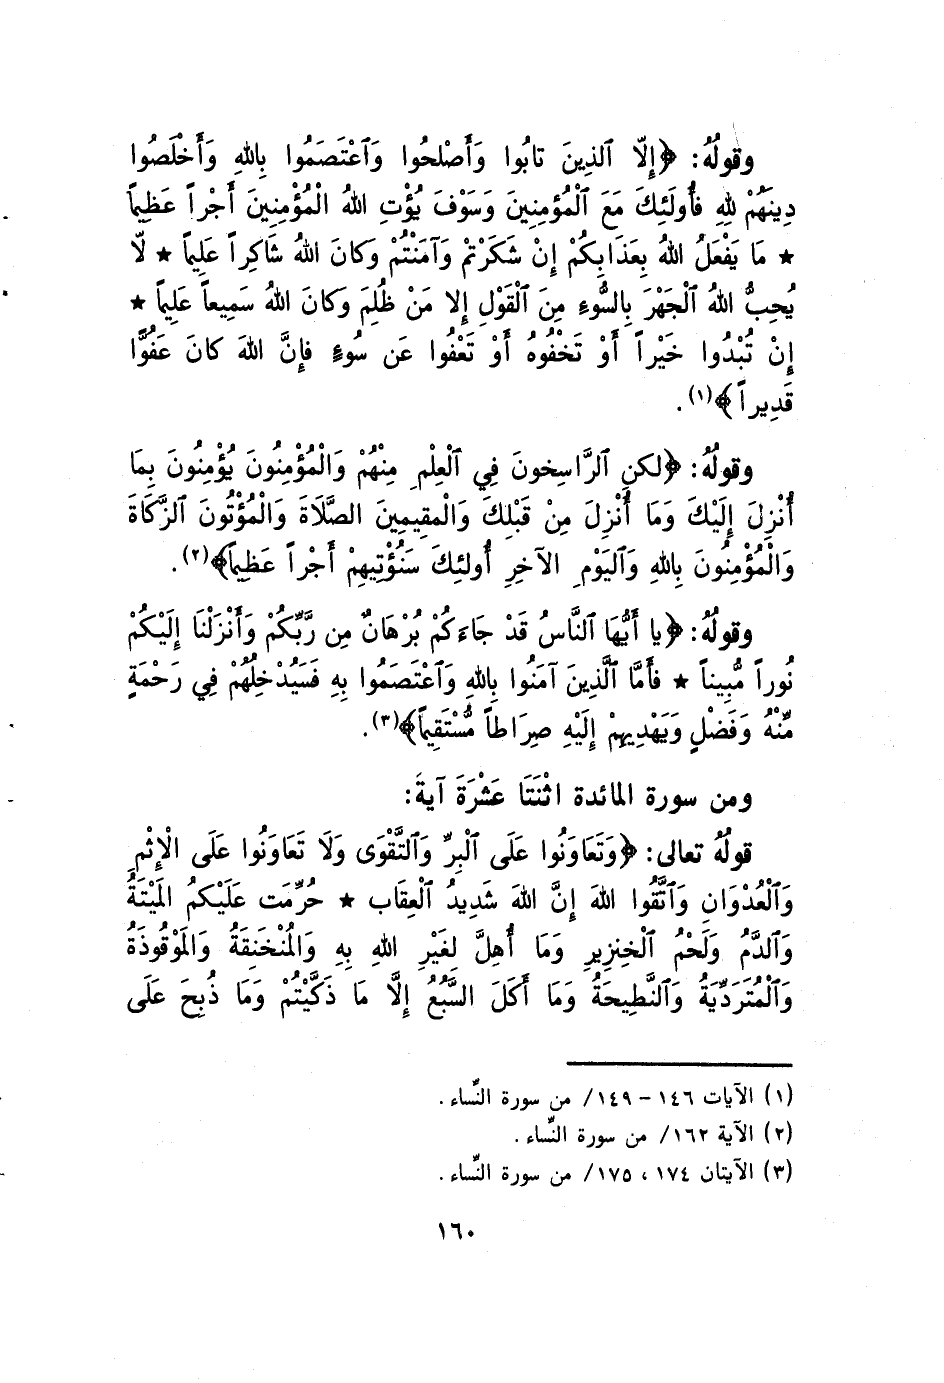 وقولُهُ: ﴿إِلّا ٱلذِينَ تابُوا وَأَصْلحُوا وَٱعْتَصَمُوا بِاللهِ وَأَخْلَصُوا
دِينَهُمْ للهِ فأُولَئِكَ مَعَ ٱلْمُؤمِنِينَ وَسَوْفَ يُؤْتِ اللهُ الْمُؤْمِنِينَ أَجْراً عَظِيماً
★ مَا يَفْعَلُ اللهُ بِعَذَابِكُمْ إِنْ شَكَرْتمْ وَآمَنْتُمْ وَكانَ اللهُ شَاكِراً عَلِيماً ★ لّا
يُحِبُّ اللهُ ٱلْجَهْرَ بِالسُّوءِ مِنَ ٱلْقَوْلِ إِلا مَنْ ظُلِمَ وَكَانَ اللهُ سَمِيعاً عَلِيماً ★
إِنْ تُبْدُوا خَيْراً أَوْ تَخْفُوهُ أَوْ تَعْفُوا عَن سُوءٍ فإِنَّ اللهَ كانَ عَفُوًّا
قَدِيراً﴾(١).
وقولُهُ: ﴿لكنِ ٱلرَّاسِخونَ فِي ٱلْعِلْمِ مِنْهُمْ وَالْمُؤْمِنُونَ يُؤْمِنُونَ بِمَا
أُنْزِلَ إِلَيْكَ وَمَا أُنْزِلَ مِنْ قَبْلِكَ وَالْمقِيمِينَ الصَّلَاةَ وَالْمُؤْتُونَ ٱلزَّكَاةَ
وَالْمُؤْمِنُونَ بِاللهِ وَٱليَوْمِ الآخرِ أُولئِكَ سَنُؤْتِيهِمْ أَجْراً عَظِيماً﴾(٢).
وقولُهُ: ﴿يا أَيُّهَا ٱلنَّاسُ قَدْ جَاءَكمْ بُرْهَانٌ مِن رَّبِّكُمْ وَأَنْزَلْنَا إِلَيْكُمْ
نُوراً مُّبِيناً ★ فأَمَّا ٱلَّذِينَ آمَنُوا بِاللهِ وَٱعْتَصَمُوا بِهِ فَسَيُدْخِلُهُمْ فِي رَحْمَةٍ
مِّنْهُ وَفَضْلٍ وَيَهْدِيهِمْ إِلَيْهِ صِرَاطاً مُّسْتَقِيماً﴾(٣).
ومن سورة المائدة اثْنَتَا عَشْرَةَ آيةً:
قولُهُ تعالى: ﴿وَتَعَاوَنُوا عَلَى ٱلْبِرِّ وَٱلتَّقْوَى وَلَا تَعَاوَنُوا عَلَى الْإِثْمِ
وَٱلْعُدْوَانِ وَٱتَّقُوا اللهَ إِنَّ اللهَ شَدِيدُ ٱلْعِقَاب ★ حُرِّمَت عَلَيْكمُ المَيْتَةُ
وَٱلدَّمُ وَلَحْمُ ٱلْخِنزِيرِ وَمَا أُهِلَّ لِغَيْرِ اللهِ بِهِ وَالْمُنْخَنِقَةُ وَالمَوْقُوذَةُ
وَٱلْمُتَرَدِّيَةُ وَٱلنَّطِيحَةُ وَمَا أَكَلَ السَّبُعُ إِلَّا مَا ذَكَّيْتُمْ وَمَا ذُبِحَ عَلَى
(١) الآيات ١٤٦ - ١٤٩/ من سورة النِّساء.
(٢) الآية ١٦٢/ من سورة النِّساء.
(٣) الآيتان ١٧٤، ١٧٥/ من سورة النِّساء.
١٦٠